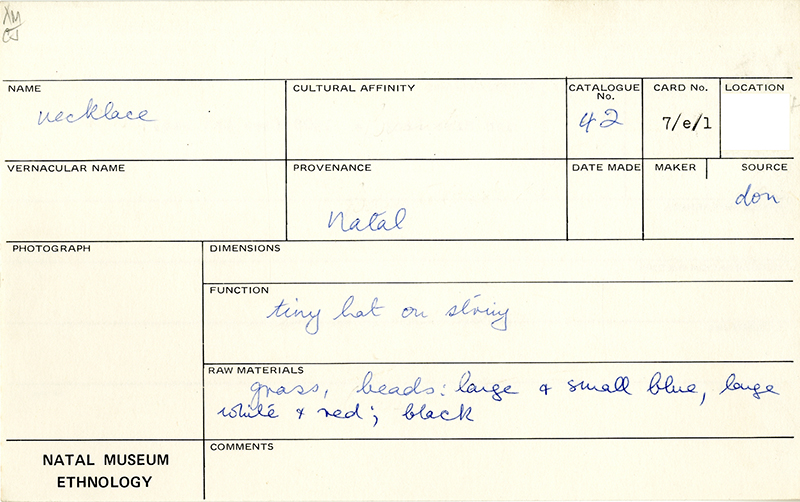 XM
CJ
NAME
necklace
CULTURAL AFFINITY
CATALOGUE No.
42
CARD No.
7/e/1
LOCATION
VERNACULAR NAME
PROVENANCE
Natal
DATE MADE
MAKER
SOURCE
don
PHOTOGRAPH
DIMENSIONS
FUNCTION
tiny hat on string
RAW MATERIALS
grass, beads: large & small blue, large
white & red; black
NATAL MUSEUM
ETHNOLOGY
COMMENTS